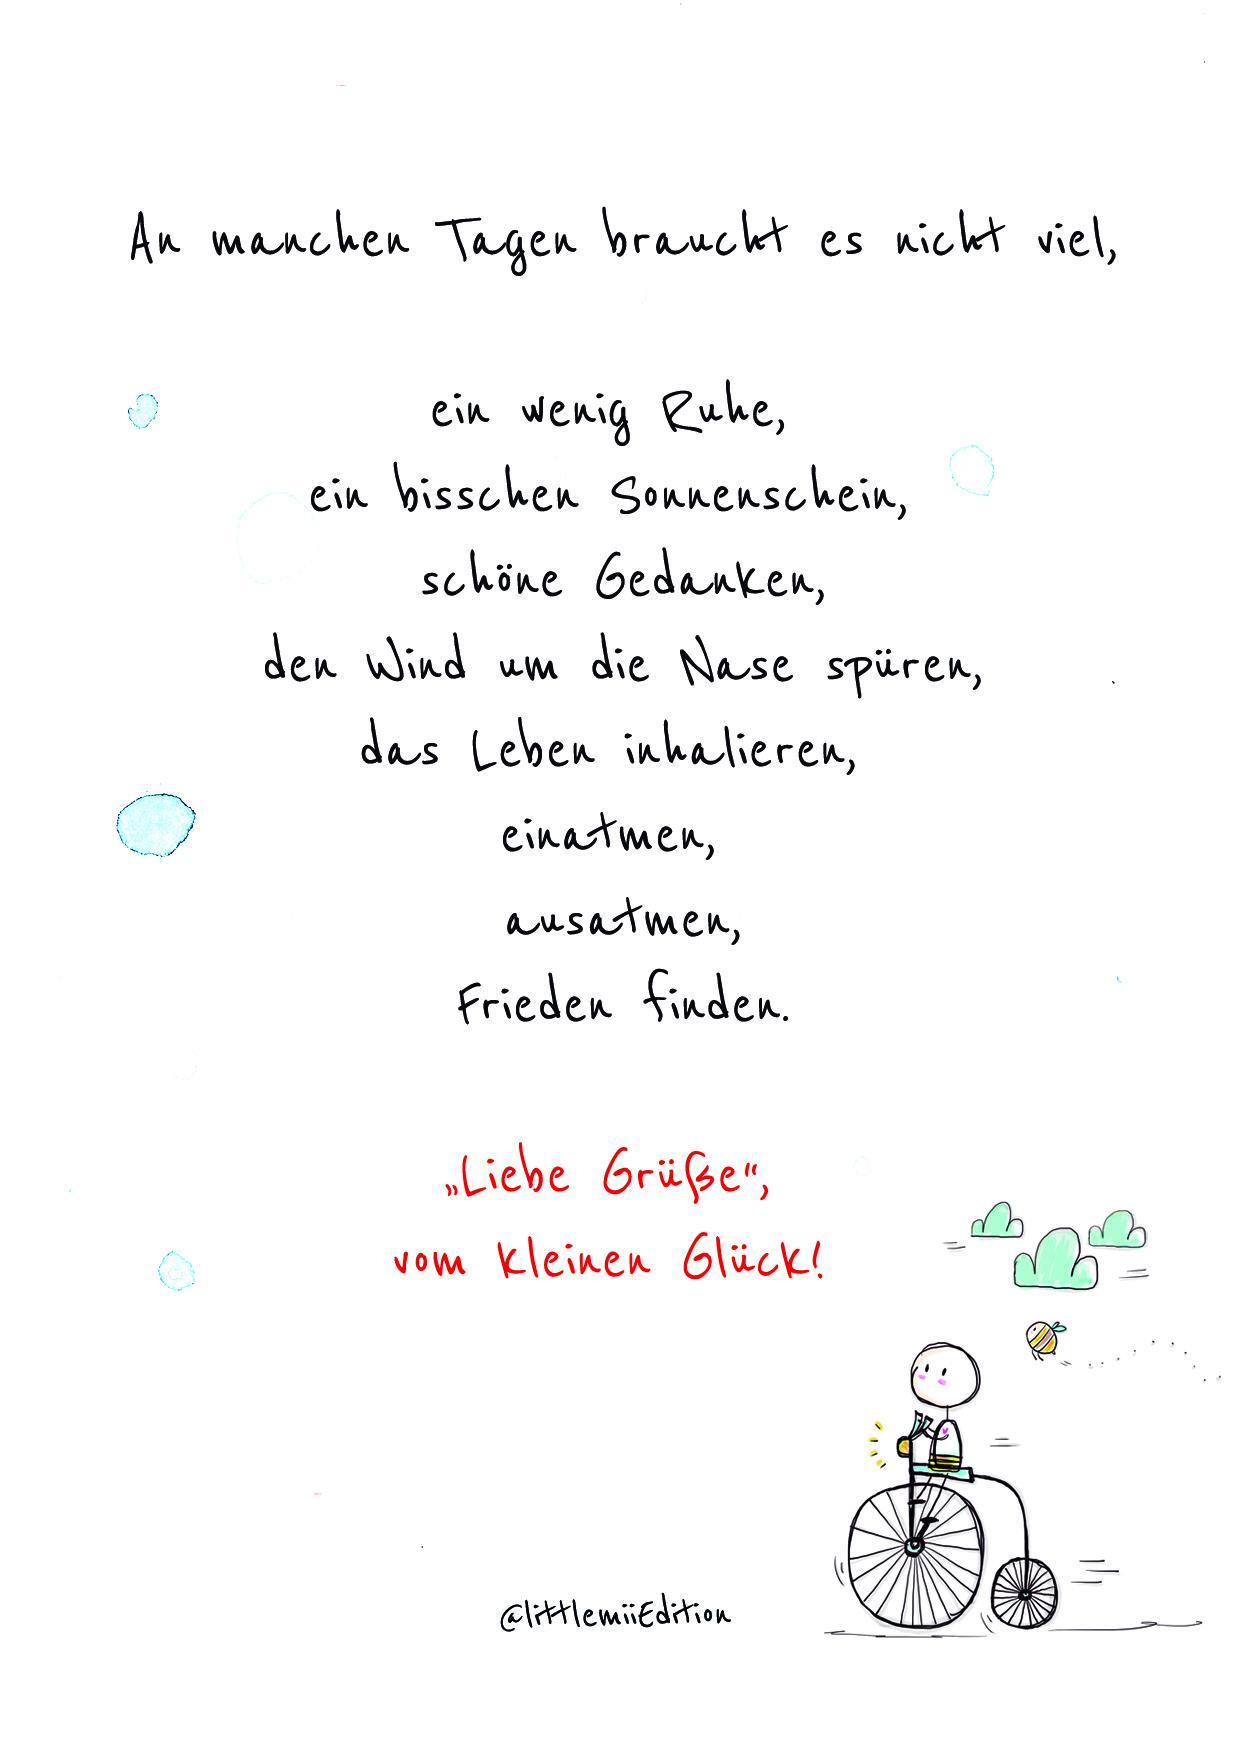 An manchen Tagen braucht es nicht viel,
ein wenig Ruhe,
ein bisschen Sonnenschein,
schöne Gedanken,
den Wind um die Nase spüren,
das Leben inhalieren,
einatmen,
ausatmen,
Frieden finden.
„Liebe Grüße“,
vom kleinen Glück!
@littlemiiEdition